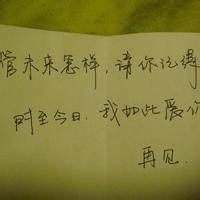 管未来怎样,请你记得
时至今日,我如此爱你
再见.